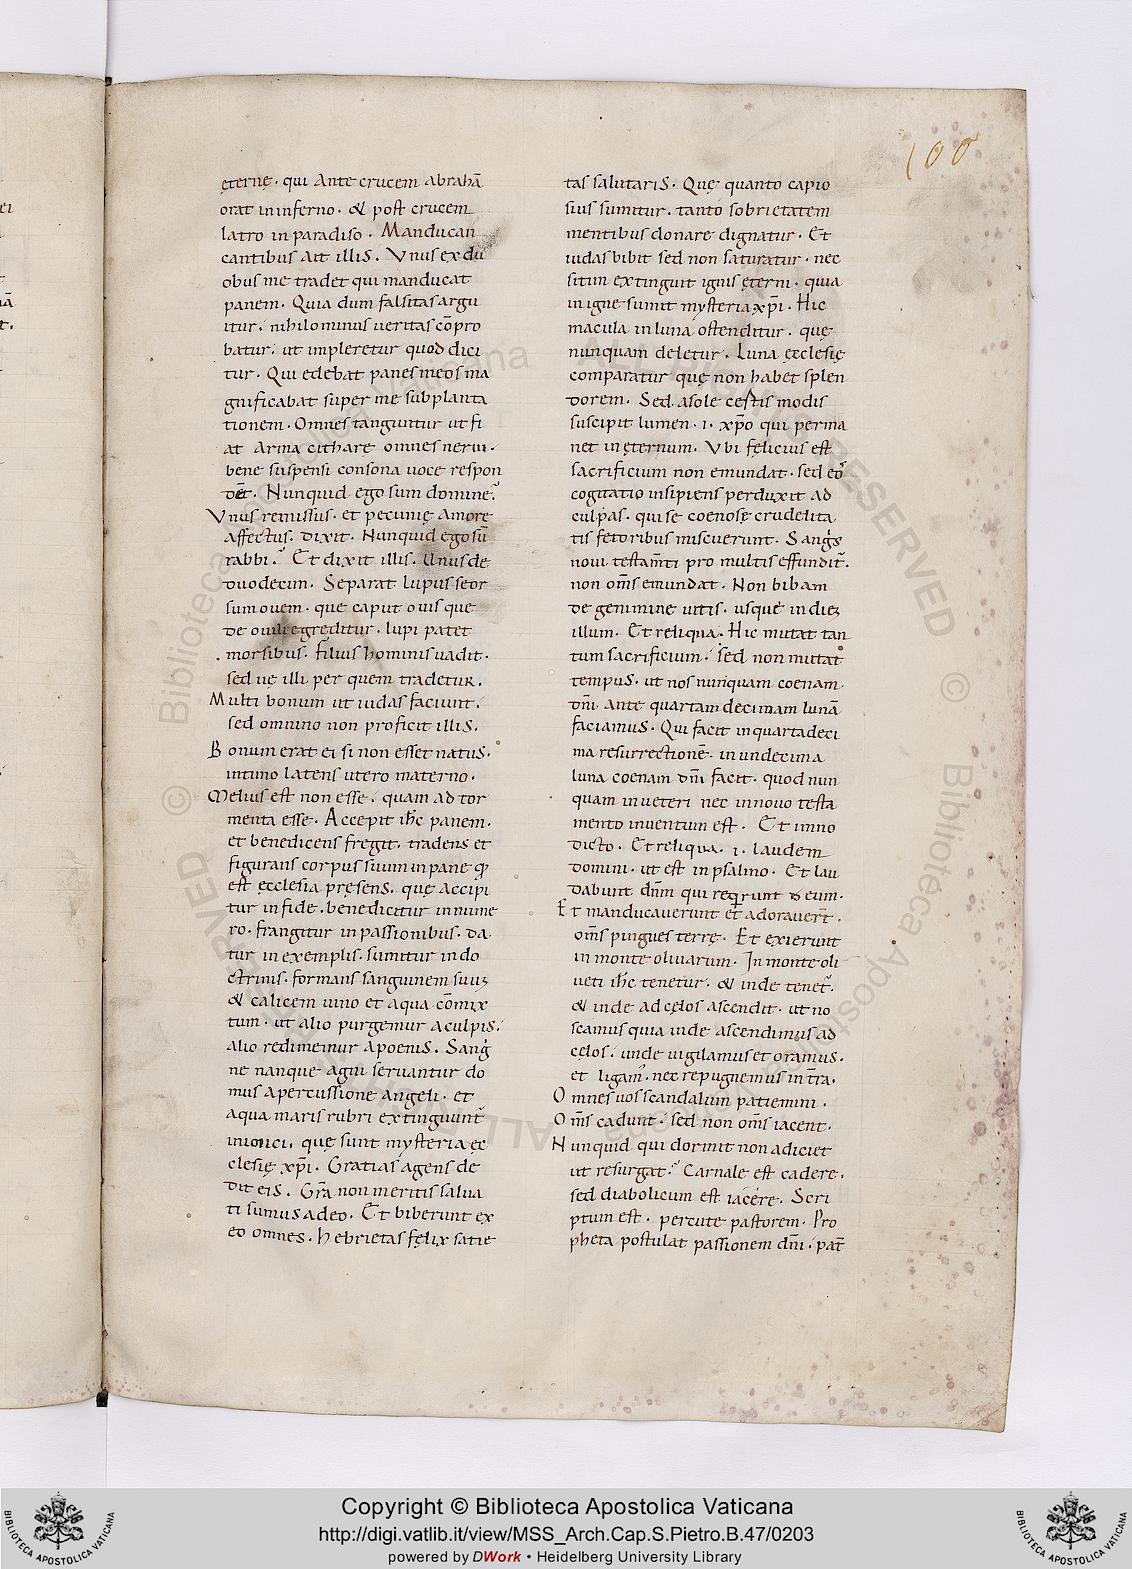 100
ęternę · qui Ante crucem Abrahā
orat in inferno · & post crucem
latro in paradiso · Manducan
cantibus Ait illis. Vnus ex du
obus me tradet qui manducat
panem · Quia dum falsitas argu
itur · nihilominus ueritas cōpro
batur · ut impleretur quod dici
tur · Qui edebat panes meos ma
gnificabat super me subplanta
tionem · Omnes tanguntur ut fi
at Arma citharę omnes nerui ·
bene suspensi consona uoce respon
dēt · Nunquid ego sum domine?
Vnus remissus · et pecunię Amore
Affectus · dixit · Nunquid ego sū
rabbi? Et dixit illis · Unus de
duodecim · Separat lupus seor
sum ouem · que caput ouis que
de ouili egreditur · lupi patet
morsibus · filius hominis uadit ·
sed uę illi per quem tradetur.
Multi bonum ut iudas faciunt ·
sed omnino non proficit illis.
Bonum erat ei si non esset natus ·
intimo latens utero materno ·
Melius est non esse · quam ad tor
menta esse · Accepit ihc panem ·
et benedicens fregit · tradens et
figurans corpus suum in pane qđ
est ęcclesia pręsens · quę Accipi
tur in fide · benedicitur in nume
ro · frangitur in passionibus · da
tur in exemplis · sumitur in do
ctrinis · formans sanguinem suuꝫ
& calicem uino et aqua cōmix
tum · ut alio purgemur a culpis ·
alio redimemur A poenis · Sang
ne nanque Agni seruantur do
mus A percussione Angeli · et
aqua maris rubri extinguunt̄
inimici · quę sunt mysteria ęc
clesię xp̄i · Gratias agens de
dit eis · Gr̄a non meritis salua
ti sumus A deo · Et biberunt ex
eo omnes · hebrietas fęlix satie
tas salutaris · Quę quanto capio
sius sumitur · tanto sobrietatem
mentibus donare dignatur · Et
iudas bibit sed non saturatur · nec
sitim extinguit ignis ęterni · quia
in igne sumit mysteria xp̄i · Hic
macula in luna ostenditur · quę
nunquam deletur · Luna ęcclesię
comparatur quę non habet splen
dorem · Sed a sole cęstis modis
suscipit lumen · i · xp̄o qui perma
net in ęternum · Vbi fęlicius est
sacrificium non emundat · sed eo
cogitatio insipiens perduxit Ad
culpas · qui se coenosę crudelita
tis fetoribus miscuerunt · Sang's
noui testam̄ti pro multis effundit̄ ·
non om̄s emundat · Non bibam
de genimine uitis · usque in dieꝫ
illum · Et reliqua · Hic mutat tan
tum sacrificium · sed non mutat
tempus · ut nos nunquam coenam
dn̄i Ante quartam decimam lunā
faciamus · Qui facit in quartadeci
ma resurrectionē · in undecima
luna coenam dn̄i facit · quod nun
quam in ueteri nec in nouo testa
mento inuentum est · Et imno
dicto · Et reliqua · i · laudem
domini · ut est in psalmo · Et lau
dabunt dn̄m qui reqrunt eum ·
Et manducauerunt et adorauer̄t ·
om̄s pingues terrę · Et exierunt
in monte oliuarum · In monte oli
ueti ihc tenetur · & inde tenet̄ ·
& inde ad cęlos ascendit · ut no
scamus quia inde ascendimus ad
cęlos · unde uigilamus et oramus ·
et ligam̄ · nec repugnemus in t̄ra ·
Omnes uos scandalum patiemini ·
Om̄s cadunt · sed non om̄s iacent ·
Nunquid qui dormit non adiciet
ut resurgat? Carnale est cadere ·
sed diabolicum est iacere · Scri
ptum est · percute pastorem · Pro
pheta postulat passionem dn̄i · pat̄
Copyright © Biblioteca Apostolica Vaticana
http://digi.vatlib.it/view/MSS_Arch.Cap.S.Pietro.B.47/0203
powered by DWork • Heidelberg University Library